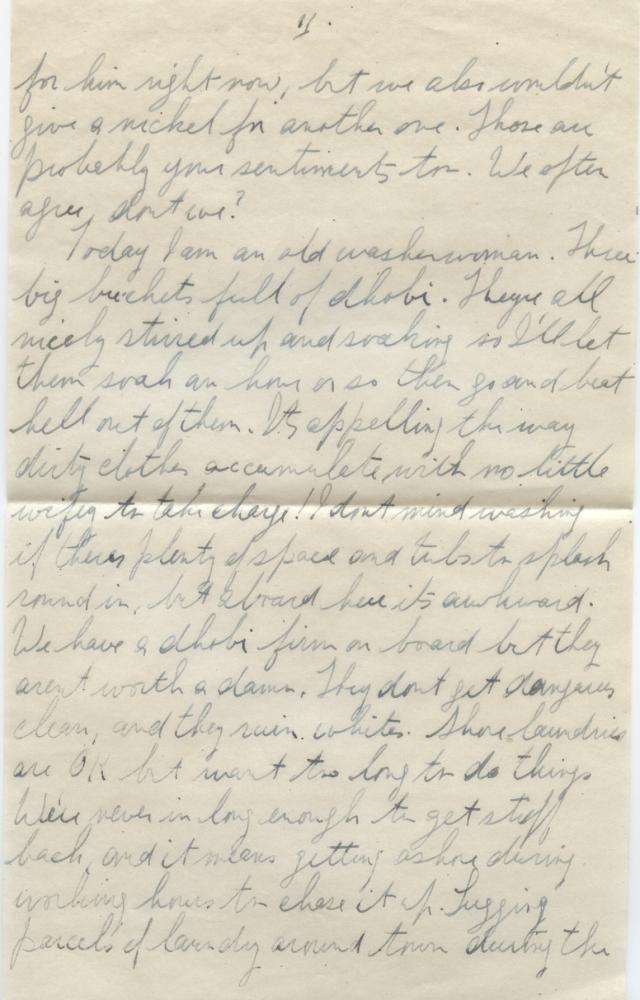 11.
for him right now, but we also wouldn't
give a nickel for another one. Those are
probably your sentiments too. We often
agree, dont we?
Today I am an old washerwoman. Three
big buckets full of dhobi. Theyre all
nicely stirred up and soaking so I'll let
them soak an hour or so then go and beat
hell out of them. Its appelling the way
dirty clothes accumulate with no little
wifey to take charge! I dont mind washing
if theres plenty of space and tubs to splash
round in, but aboard here its awkward.
We have a dhobi firm on board but they
arent worth a damn. They dont get dungarees
clean, and they ruin whites. Shore laundries
are OK but want too long to do things
We're never in long enough to get stuff
back, and it means getting ashore during
working hours to chase it up. Lugging
parcels of laundry around town during the